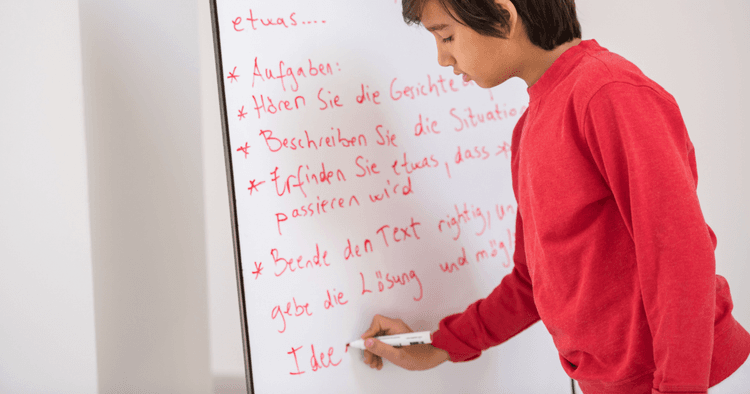 etwas....
* Aufgaben:
* Hören Sie die Gerichte
* Beschreiben Sie die Situation
* Erfinden Sie etwas, dass
passieren wird
* Beende den Text richtig,
gebe die Lösung und
Idee